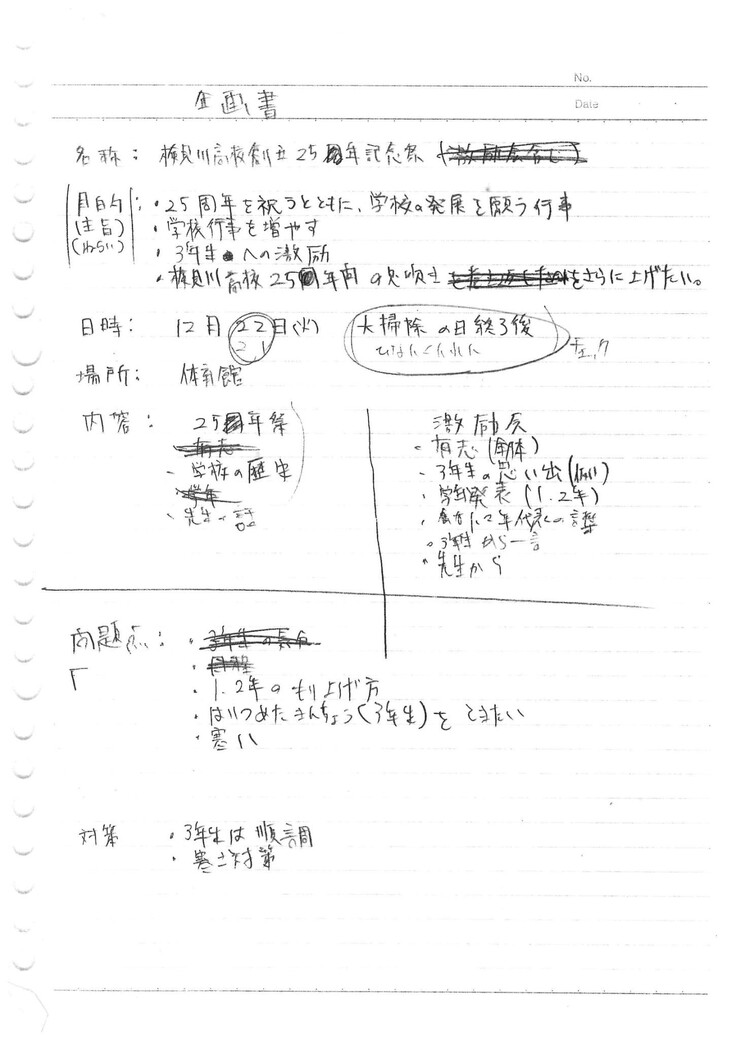 No.
Date
企画書
名称： 検見川高校創立25周年記念祭 (激励会含む)
目的：・25周年を祝うとともに、学校の発展を願う行事
(主旨) ・学校行事を増やす
(ねらい) ・3年生への激励
・検見川高校25周年内の をさらに上げたい。
日時： 12月22日(火) 大掃除の日終了後
21 チェック
場所： 体育館
内容： 25周年祭 激励会
有志 ・有志(団体)
・学校の歴史 ・3年生の思い出
学年 ・学年発表(1.2年)
・先生の話 ・1.2年代表の言葉
・3年生から一言
・先生から
問題点：・
・
「 ・1.2年のもり上げ方
・はりつめたきんちょう(3年生)をときたい
・寒い
対策 ・3年生は順調
・寒さ対策